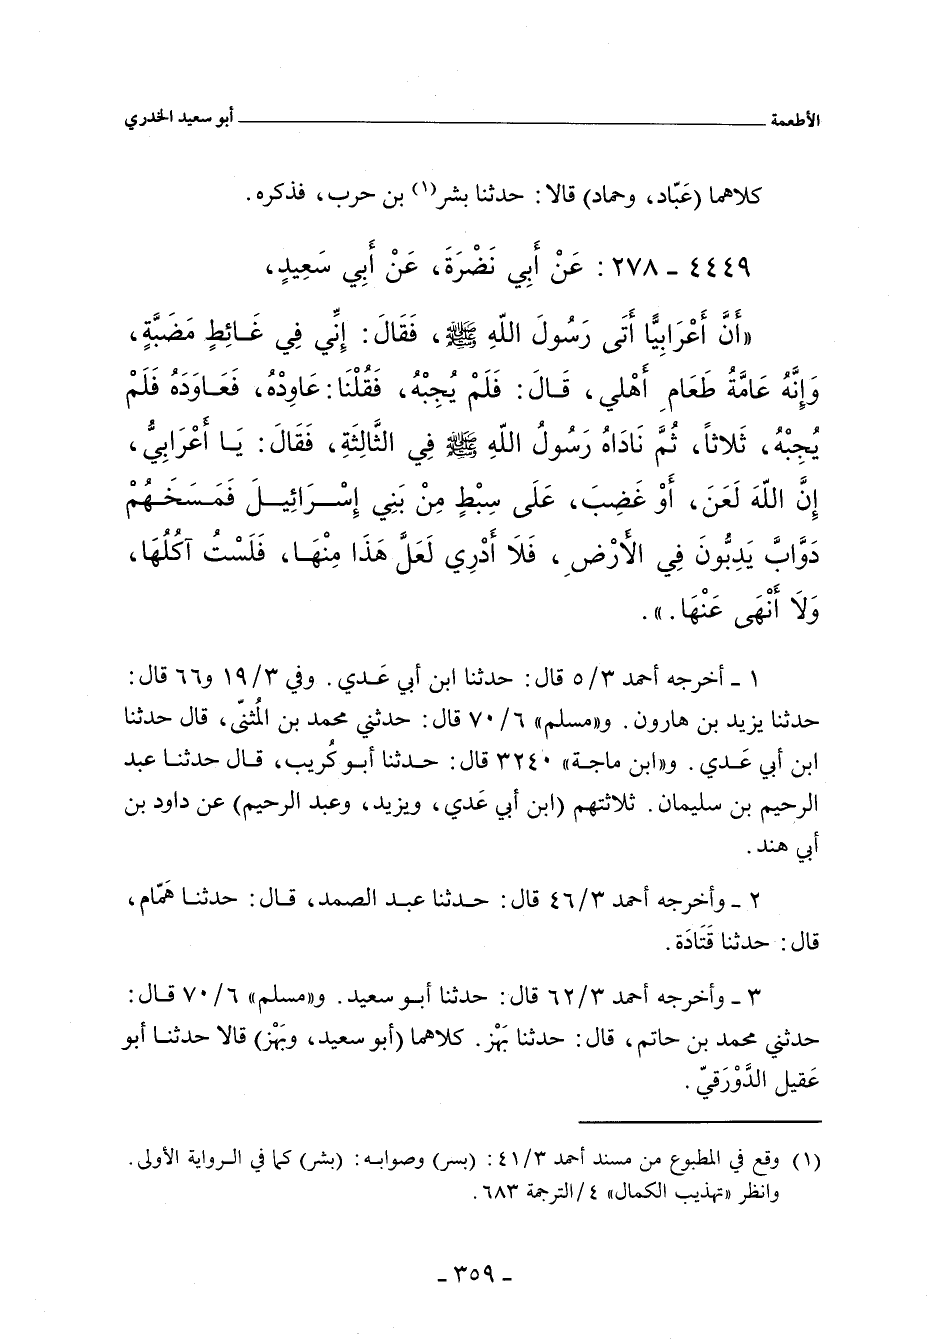 الأطعمة ــــــــــ أبو سعيد الخدري
كلاهما (عَبّاد، وحماد) قالا: حدثنا بشر(١) بن حرب، فذكره.
٤٤٤٩ ـ ٢٧٨: عَنْ أَبِي نَضْرَةَ، عَنْ أَبِي سَعِيدٍ،
«أَنَّ أَعْرَابِيًّا أَتَى رَسُولَ اللّهِ ﷺ، فَقَالَ: إِنِّي فِي غَائِطٍ مَضَبَّةٍ،
وَإِنَّهُ عَامَّةُ طَعَامِ أَهْلِي، قَالَ: فَلَمْ يُجِبْهُ، فَقُلْنَا: عَاوِدْهُ، فَعَاوَدَهُ فَلَمْ
يُجِبْهُ، ثَلاثاً، ثُمَّ نَادَاهُ رَسُولُ اللّهِ ﷺ فِي الثَّالِثَةِ، فَقَالَ: يَا أَعْرَابِيُّ،
إِنَّ اللّهَ لَعَنَ، أَوْ غَضِبَ، عَلَى سِبْطٍ مِنْ بَنِي إِسْرَائِيلَ فَمَسَخَهُمْ
دَوَّابَّ يَدِبُّونَ فِي الأَرْضِ، فَلَا أَدْرِي لَعَلَّ هَذَا مِنْهَا، فَلَسْتُ آكُلُهَا،
وَلَا أَنْهَى عَنْهَا.».
١ ـ أخرجه أحمد ٥/٣ قال: حدثنا ابن أبي عَدي. وفي ١٩/٣ و٦٦ قال:
حدثنا يزيد بن هارون. و«مسلم» ٧٠/٦ قال: حدثني محمد بن المُثنّى، قال حدثنا
ابن أبي عَدي. و«ابن ماجة» ٣٢٤٠ قال: حدثنا أبو كُريب، قال حدثنا عبد
الرحيم بن سليمان. ثلاثتهم (ابن أبي عَدي، ويزيد، وعبد الرحيم) عن داود بن
أبي هند.
٢ ـ وأخرجه أحمد ٤٦/٣ قال: حدثنا عبد الصمد، قال: حدثنا هَمّام،
قال: حدثنا قَتَادَة.
٣ ـ وأخرجه أحمد ٦٢/٣ قال: حدثنا أبو سعيد. و«مسلم» ٧٠/٦ قال:
حدثني محمد بن حاتم، قال: حدثنا بَهْز. كلاهما (أبو سعيد، وبَهْز) قالا حدثنا أبو
عَقيل الدَّوْرَقيّ.
(١) وقع في المطبوع من مسند أحمد ٤١/٣: (بسر) وصوابه: (بشر) كما في الرواية الأولى.
وانظر «تهذيب الكمال» ٤/الترجمة ٦٨٣.
ـ ٣٥٩ ـ